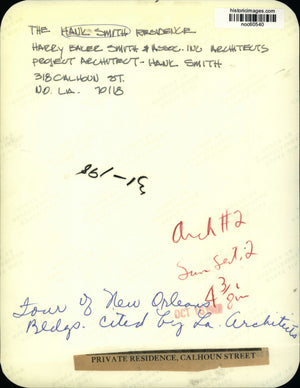 historicimages.com
noc60540
THE HANK SMITH RESIDENCE
HARRY BAKER SMITH & ASSOC. INC ARCHITECTS
PROJECT ARCHITECT - HANK SMITH
318 CALHOUN ST.
N.O. LA. 70118
Arch #2
Sun Sat. 2
OCT
Tour of New Orleans
Bldgs. cited by La. Architects
PRIVATE RESIDENCE, CALHOUN STREET